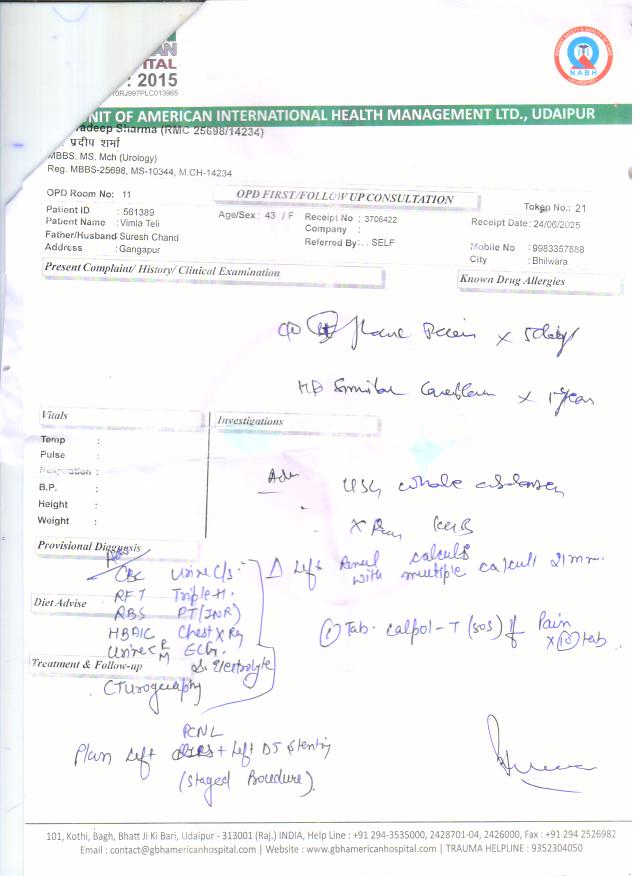 AN
PITAL
: 2015
10RJ997PLC013965
NABH
UNIT OF AMERICAN INTERNATIONAL HEALTH MANAGEMENT LTD., UDAIPUR
adeep Sharma (RMC 25698/14234)
. प्रदीप शर्मा
MBBS. MS. Mch (Urology)
Reg. MBBS-25698, MS-10344, M.CH-14234
OPD Room No: 11
OPD FIRST/FOLLOW UP CONSULTATION
Token No.: 21
Patient ID : 561389
Age/Sex : 43 / F
Receipt No : 3706422
Receipt Date : 24/06/2025
Patient Name : Vimla Teli
Company :
Father/Husband Suresh Chand
Referred By : . SELF
Mobile No : 9983357888
Address : Gangapur
City : Bhilwara
Present Complaint/ History/ Clinical Examination
Known Drug Allergies
C/O flank Pain x 5 days
H/O Similar Complain x 1 year
Vitals
Investigations
Temp :
Pulse :
Respiration :
B.P. :
Height :
Weight :
Adv USG whole abdomen
X Ray KUB
Provisional Diagnosis
Δ Left Renal calculus
with multiple calculi 21mm.
Adv
CBC Urine C/S
RFT Triple H.
Diet Advise
RBS PT(INR)
HBA1C Chest X Ray
Urine R/M ECG.
S. Electrolyte
① Tab. Calpol-T (SOS) if Pain
x 10 tab
Treatment & Follow-up
CT urography
Plan Left PCNL + Left DJ Stenting
(Staged Procedure).
101, Kothi, Bagh, Bhatt Ji Ki Bari, Udaipur - 313001 (Raj.) INDIA, Help Line : +91 294-3535000, 2428701-04, 2426000, Fax : +91 294 2526982
Email : contact@gbhamericanhospital.com | Website : www.gbhamericanhospital.com | TRAUMA HELPLINE : 9352304050